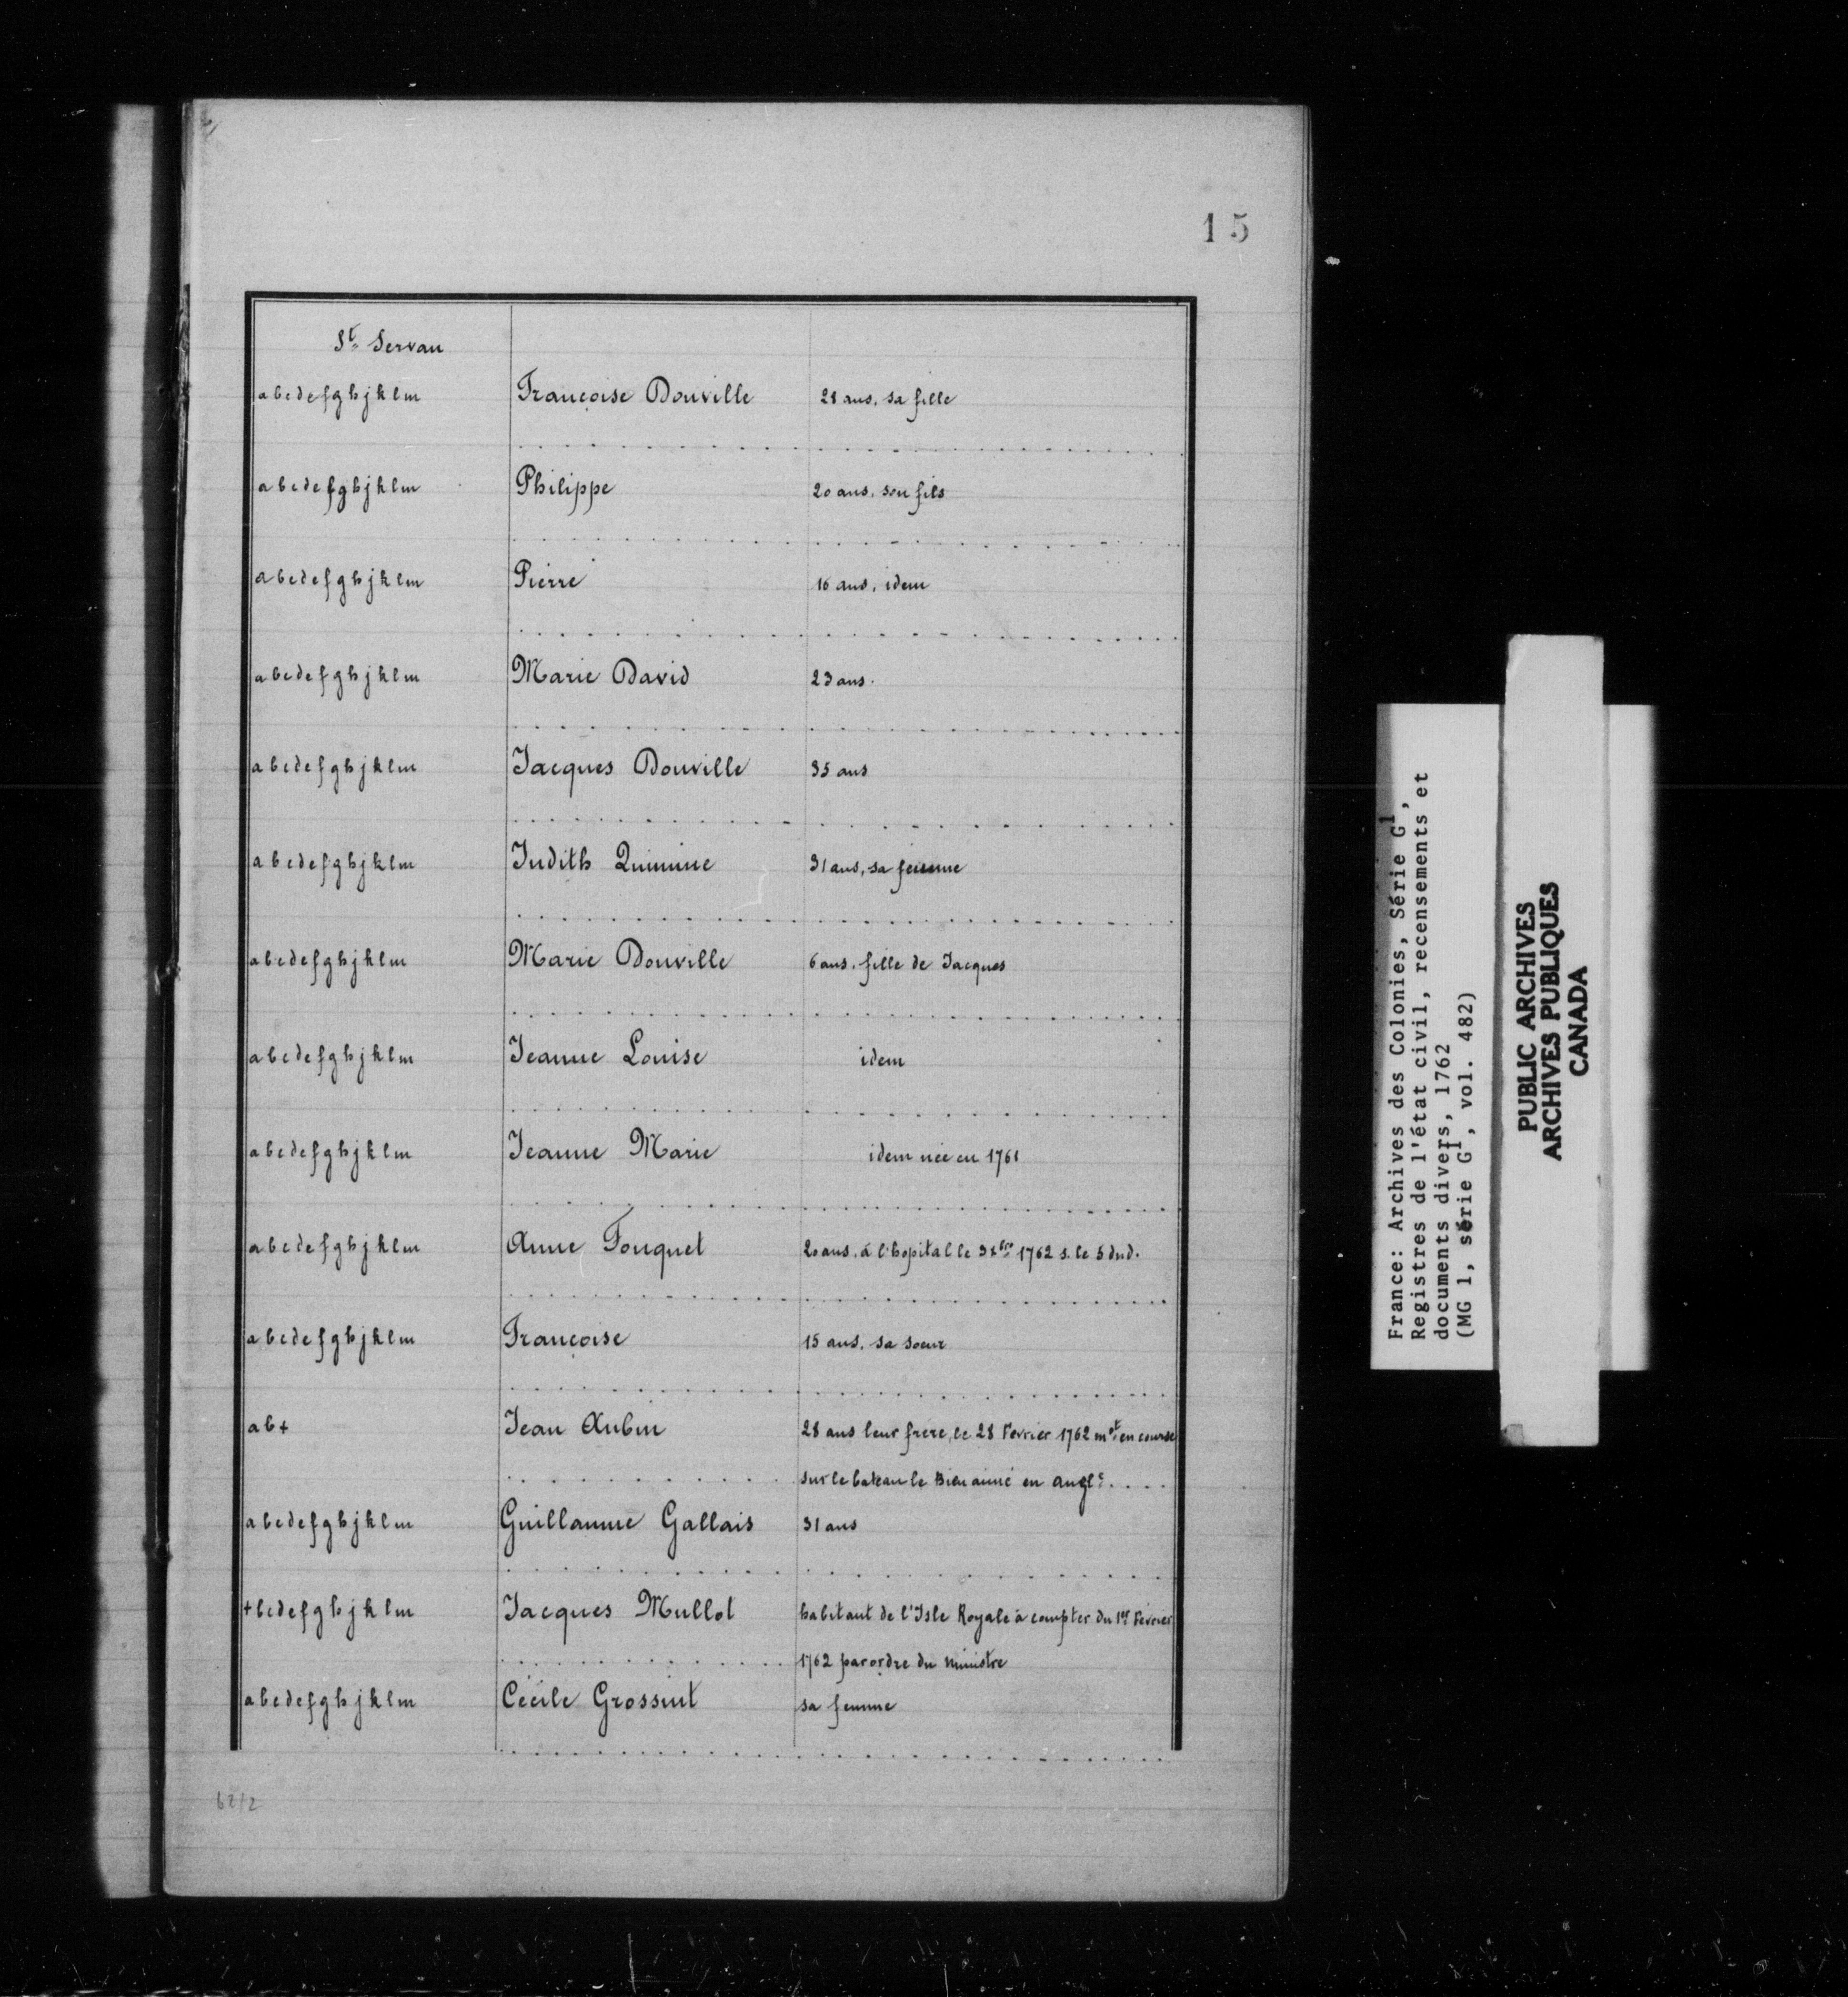 15
St. Servan
abcdefghjklm Françoise Douville 28 ans, sa fille
abcdefghjklm Philippe 20 ans, son fils
abcdefghjklm Pierre 16 ans, idem
abcdefghjklm Marie David 23 ans.
abcdefghjklm Jacques Douville 35 ans
abcdefghjklm Judith Quimine 31 ans, sa femme
abcdefghjklm Marie Douville 6 ans, fille de Jacques
abcdefghjklm Jeanne Louise idem
abcdefghjklm Jeanne Marie idem née en 1761
abcdefghjklm Anne Fouquet 20 ans, à l'hopital le 3 xbre 1762 s. le 5 dud.
abcdefghjklm Françoise 15 ans, sa soeur
ab+ Jean Aubin 28 ans leur frère, le 28 Février 1762 mort en course
sur le bateau le Bien aimé en angle.
abcdefghjklm Guillaume Gallais 31 ans
+bcdefghjklm Jacques Mullot habitant de l'Isle Royale à compter du 1er Février
1762 par ordre du ministre
abcdefghjklm Cécile Grossint sa femme
62/2
France: Archives des Colonies, Série G1,
Registres de l'état civil, recensements et
documents divers, 1762
(MG 1, série G1, vol. 482)
PUBLIC ARCHIVES
ARCHIVES PUBLIQUES
CANADA